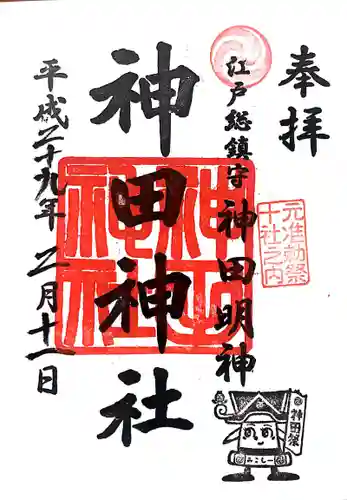 奉拝
江戸総鎮守 神田明神
元准勅祭
十社之内
神田神社
平成二十九年 二月十一日
神田祭
みこしー